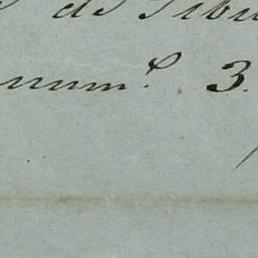 de Tibu
num.º 3.